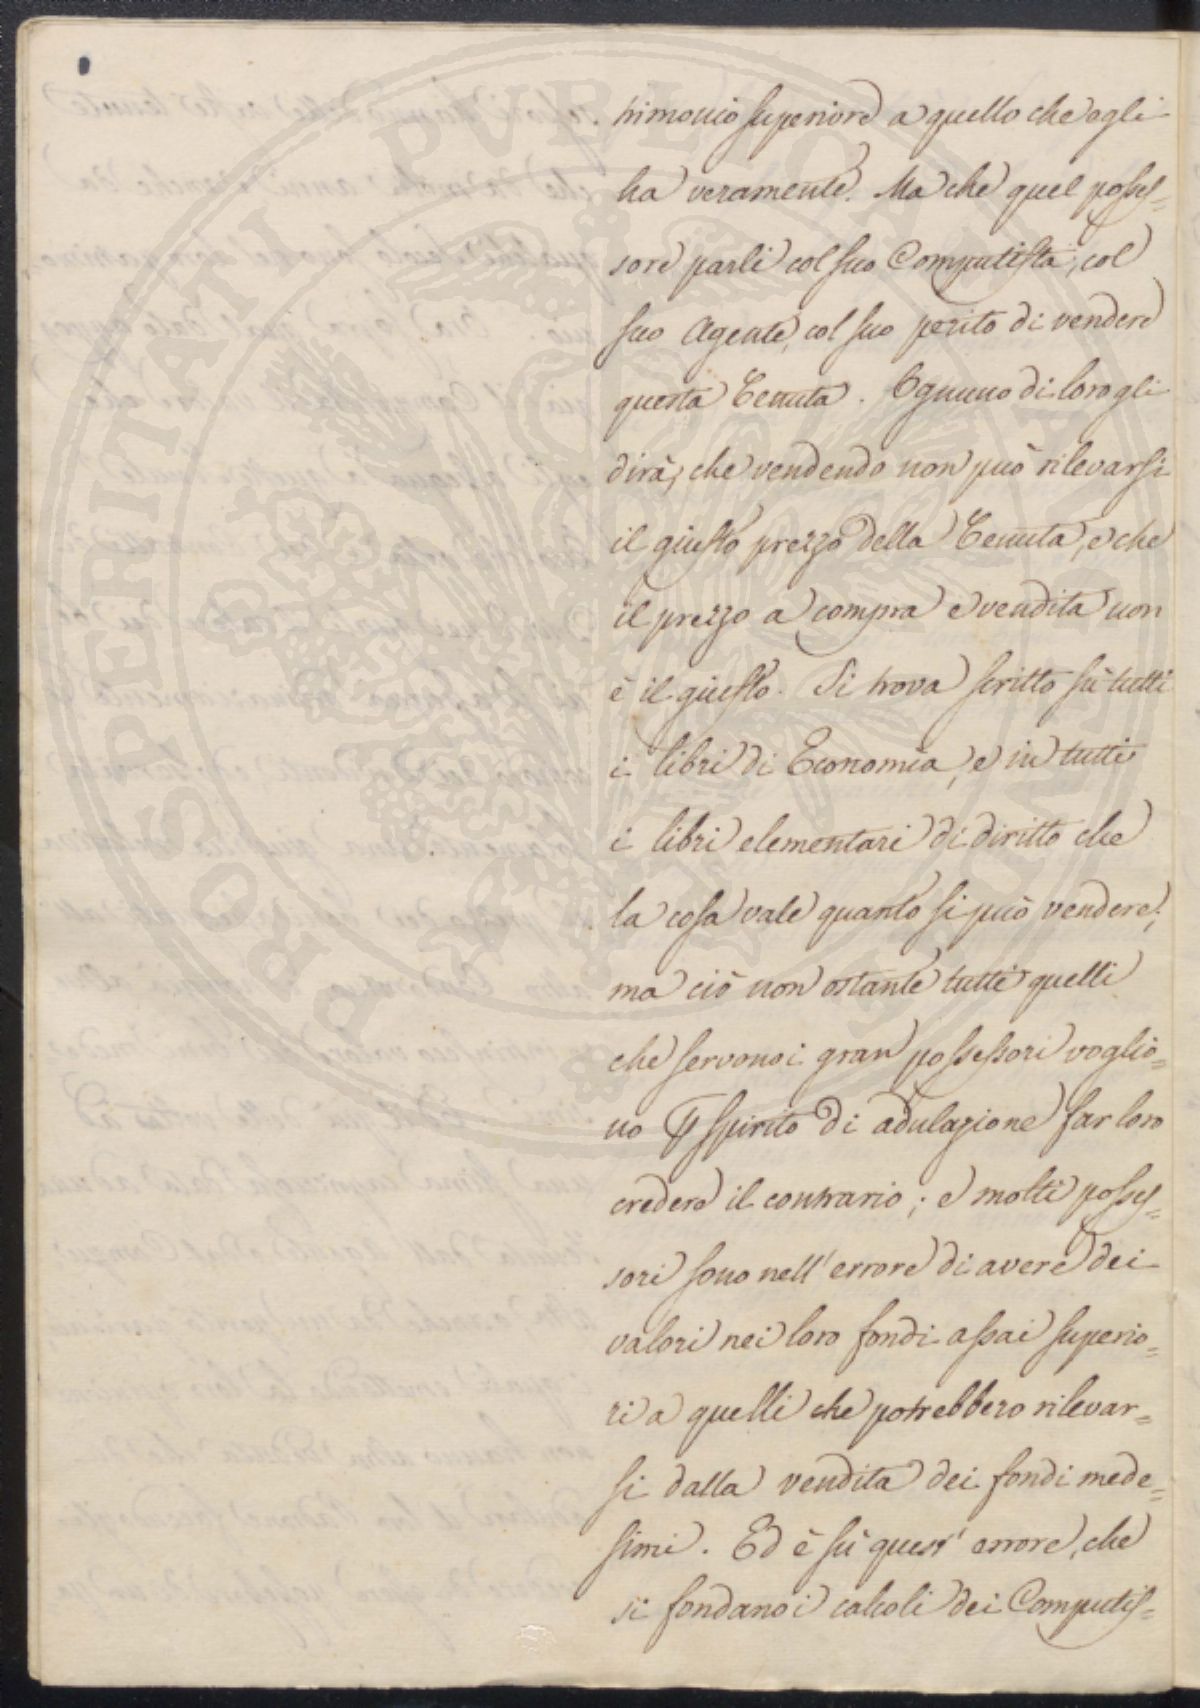 trimonio superiore a quello che egli
ha veramente. Ma che quel posses=
sore parli col suo Computista, col
suo Agente, col suo perito di vendere
questa Tenuta. Ognuno di loro gli
dirà, che vendendo non può rilevarsi
il giusto prezzo della Tenuta, e che
il prezzo a compra e vendita non
è il giusto. Si trova scritto sù tutti
i libri di Economia, e in tutti
i libri elementari di diritto che
la cosa vale quanto si può vendere;
ma ciò non ostante tutti quelli
che servono i gran possessori voglio=
no p spirito di adulazione far loro
credere il contrario; e molti posses=
sori sono nell'errore di avere dei
valori nei loro fondi assai superio=
ri a quelli che potrebbero rilevar=
si dalla vendita dei fondi mede=
simi. Ed è sù quest'errore, che
si fondano i calcoli dei Computis=
PROSPERITATI PUBLICAE